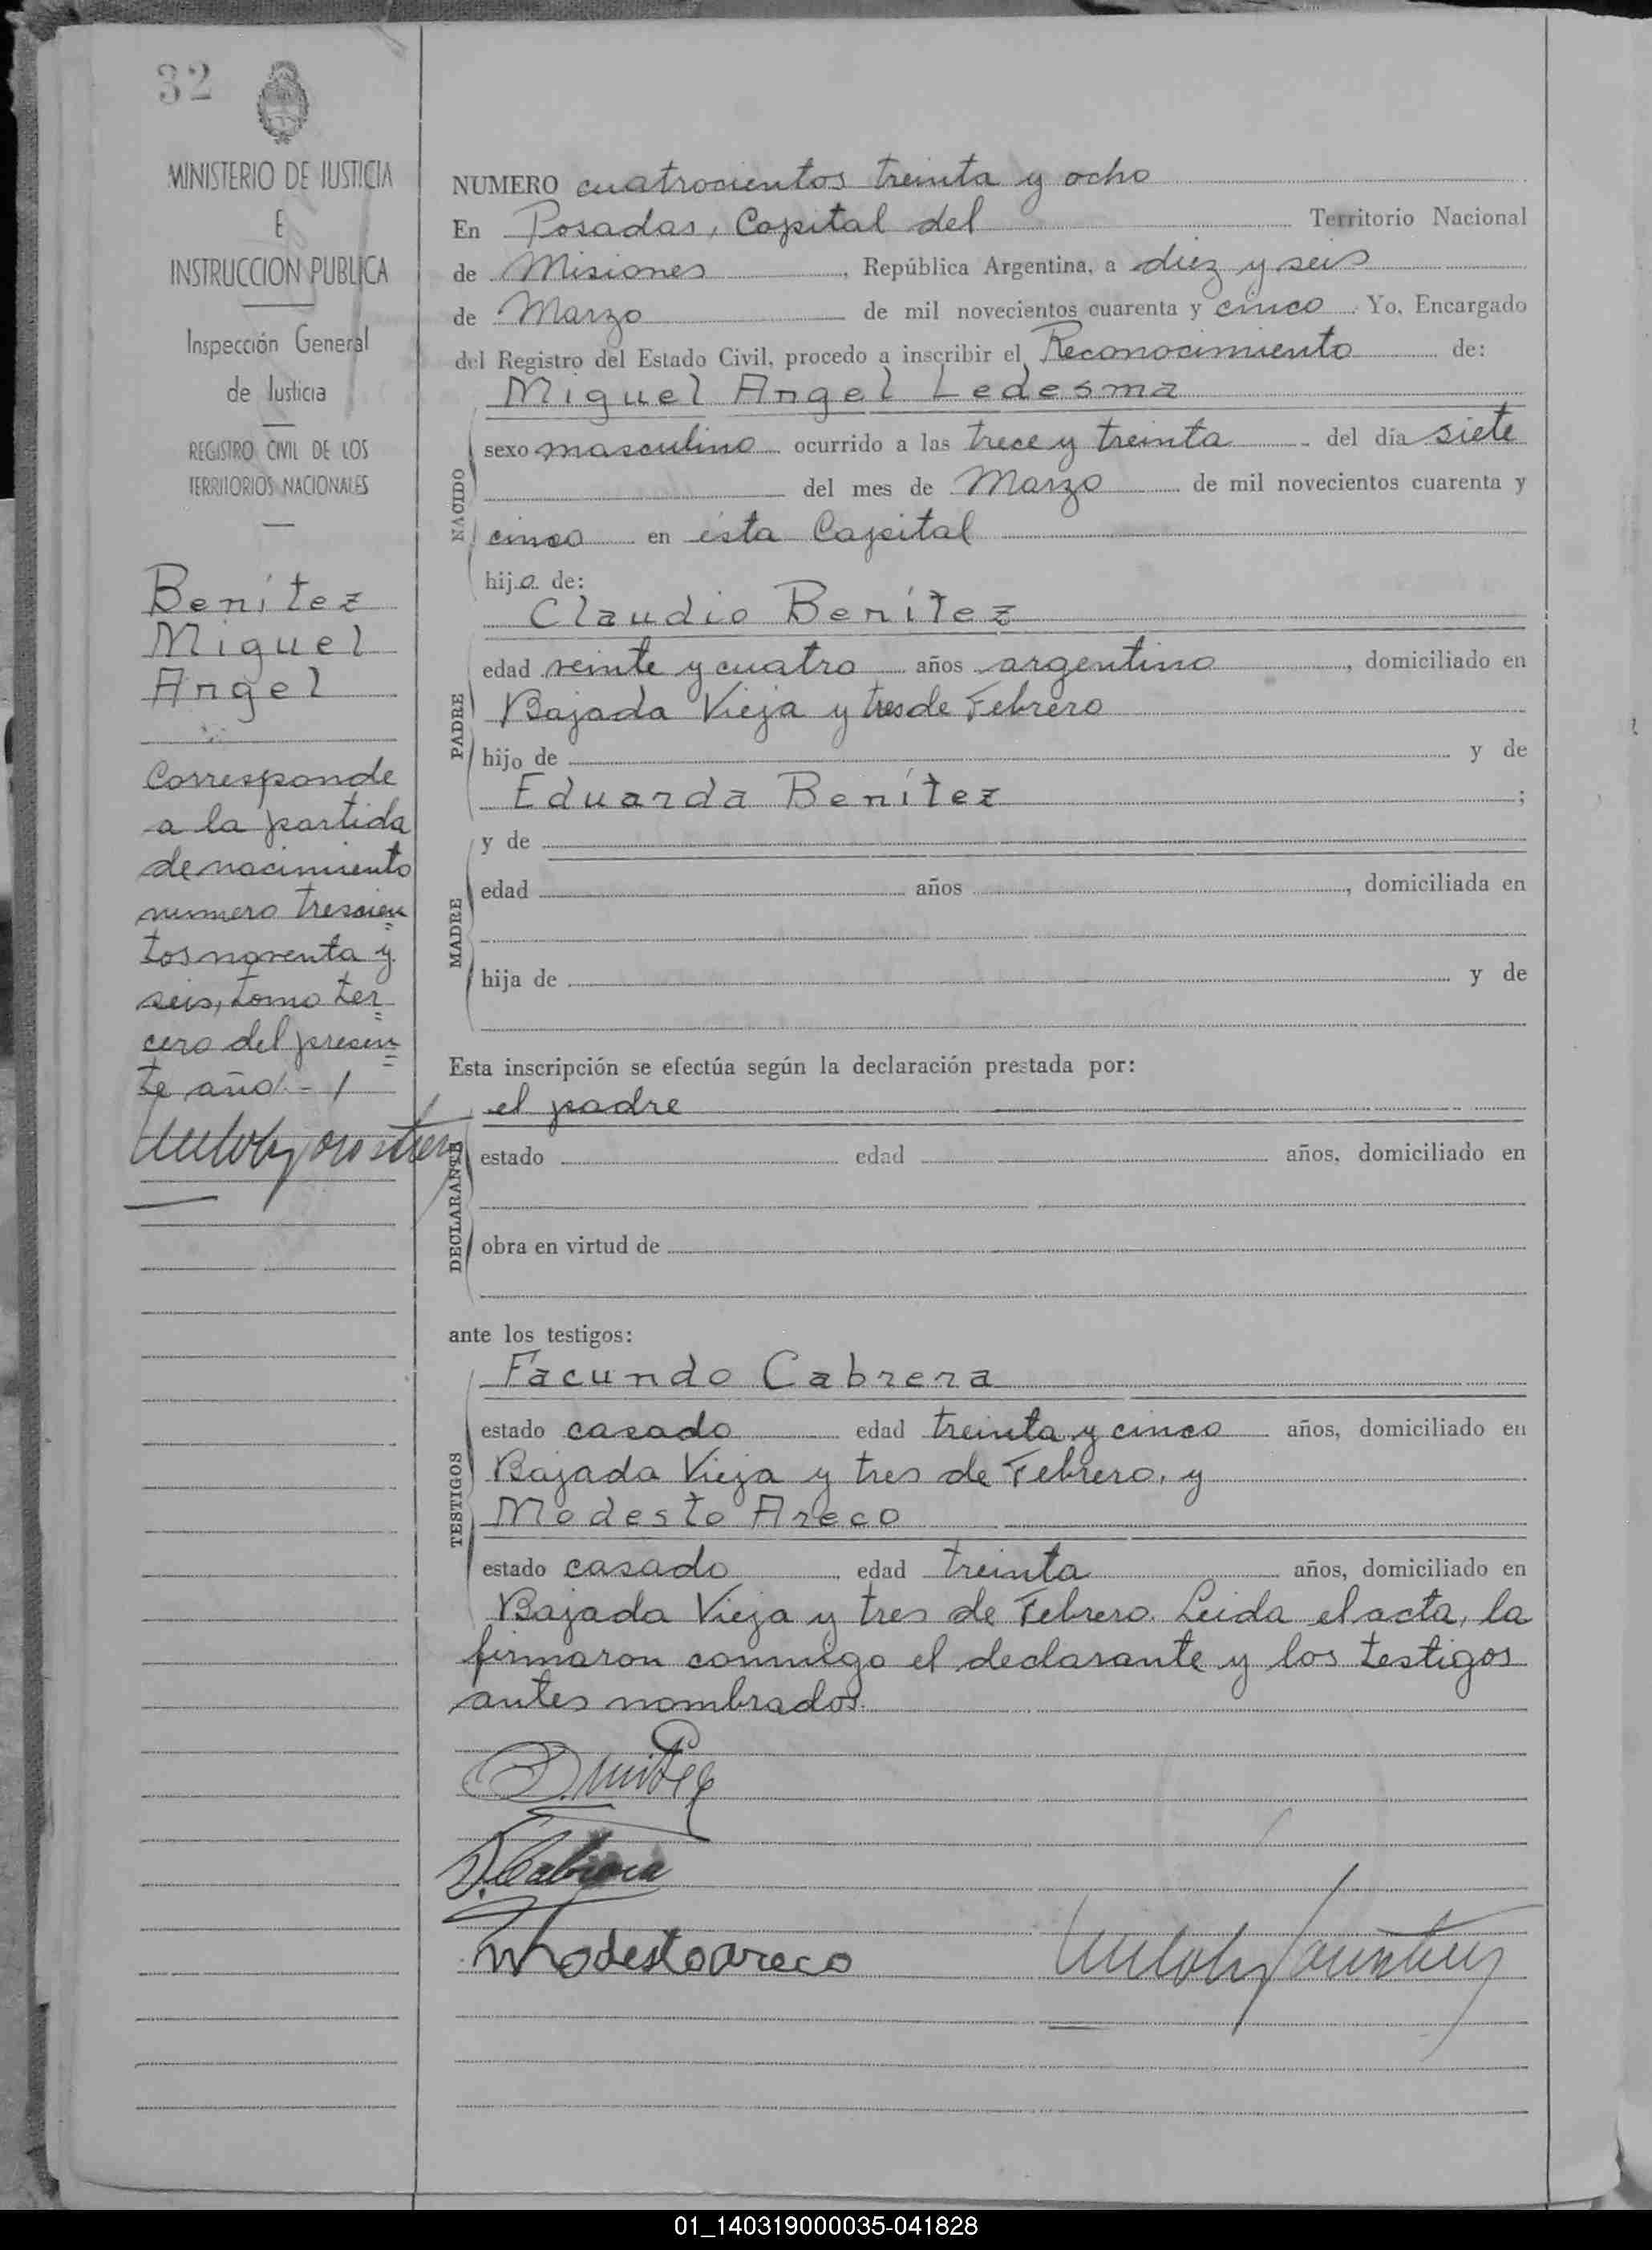 32
MINISTERIO DE JUSTICIA
E
INSTRUCCION PUBLICA
Inspección General
de Justicia
REGISTRO CIVIL DE LOS
TERRITORIOS NACIONALES
Benítez
Miguel
Angel
Corresponde
a la partida
de nacimiento
numero trescien
tos noventa y
seis, tomo ter
cero del presen
te año.-
NUMERO cuatrocientos treinta y ocho
En Posadas, Capital del Territorio Nacional
de Misiones, República Argentina, a diez y seis
de Marzo de mil novecientos cuarenta y cinco. Yo, Encargado
del Registro del Estado Civil, procedo a inscribir el Reconocimiento de:
Miguel Angel Ledesma
NACIDO
sexo masculino ocurrido a las trece y treinta del día siete
del mes de Marzo de mil novecientos cuarenta y
cinco en ésta Capital
hijo de:
Claudio Benítez
PADRE
edad veinte y cuatro años argentino, domiciliado en
Bajada Vieja y tres de Febrero
hijo de y de
Eduarda Benítez;
y de
MADRE
edad años, domiciliada en
hija de y de
Esta inscripción se efectúa según la declaración prestada por:
el padre
DECLARANTE
estado edad años, domiciliado en
obra en virtud de
ante los testigos:
Facundo Cabrera
TESTIGOS
estado casado edad treinta y cinco años, domiciliado en
Bajada Vieja y tres de Febrero, y
Modesto Areco
estado casado edad treinta años, domiciliado en
Bajada Vieja y tres de Febrero. Leida el acta, la
firmaron conmigo el declarante y los testigos
antes nombrados.
F. Cabrera
Modesto areco
01_140319000035-041828